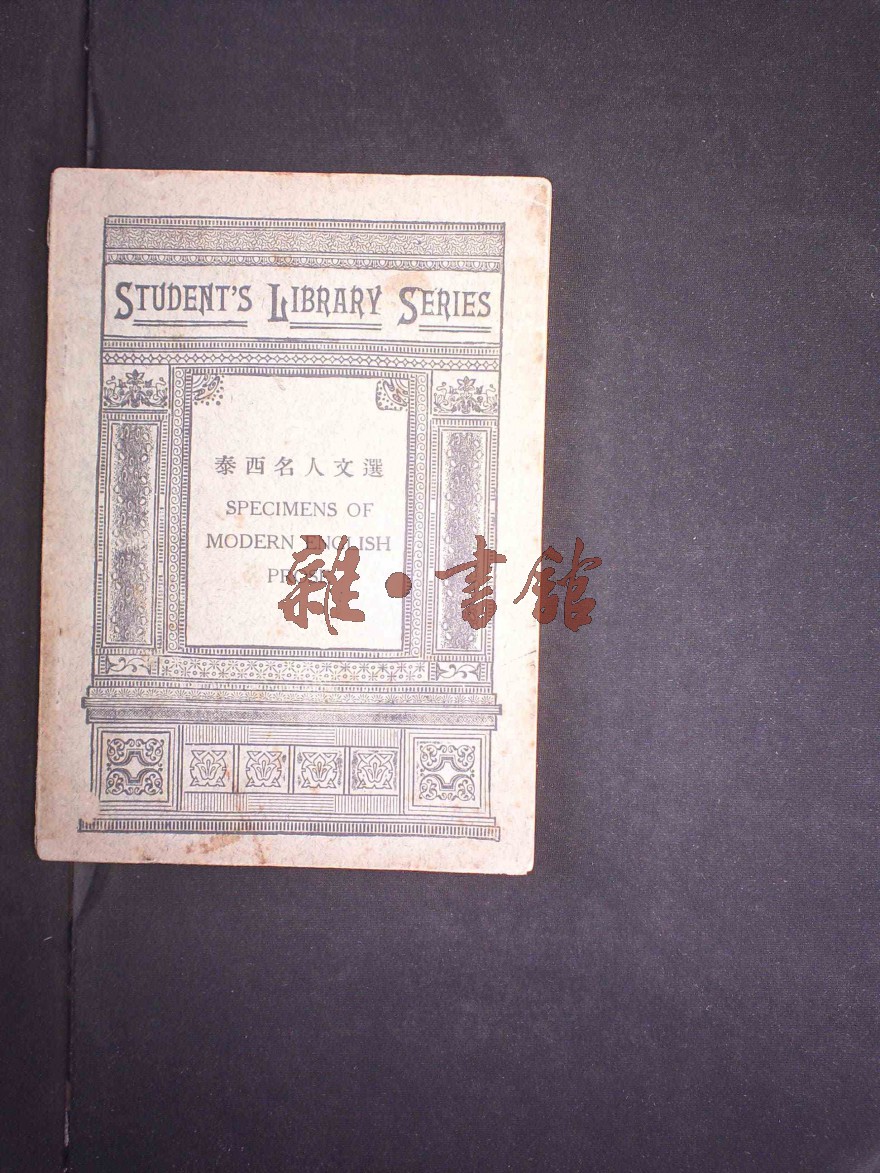 STUDENT'S LIBRARY SERIES
泰西名人文選
SPECIMENS OF
MODERN ENGLISH
PROSE
雜·書館